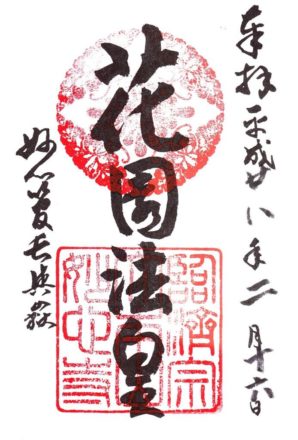 奉拝 平成廿八年二月十六日
花園法皇
妙心
臨濟宗
妙心寺